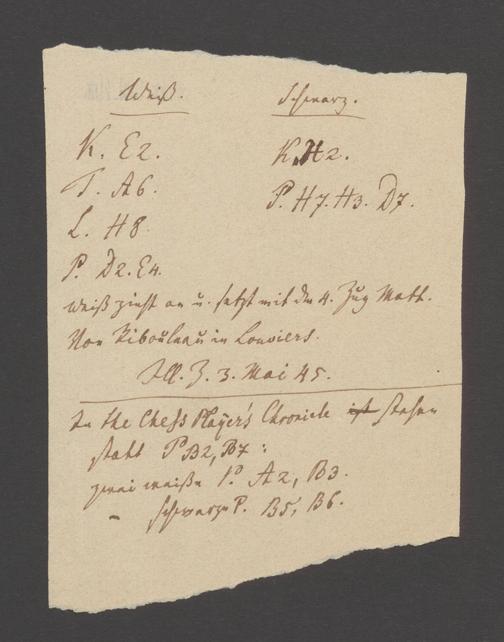 Weiß. Schwarz.
K. E2. K. H2.
T. A6. P. H7. H3. D7.
L. H8.
P. D2. E4.
Weiß zieht an u. setzt mit dem 4. Zug Matt.
Von Ribouleau in Louviers.
Ill. Z. 3. Mai 45.
In the Chess Player's Chronicle ist stehen
statt P B2, B7:
zwei weiße P. A2, B3.
- schwarze P. B5, B6.